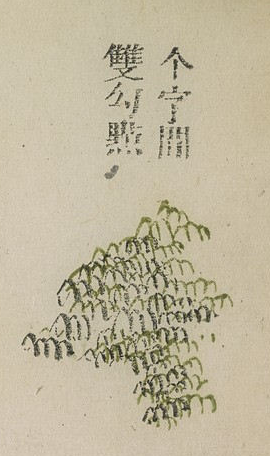 个字間
雙勾點